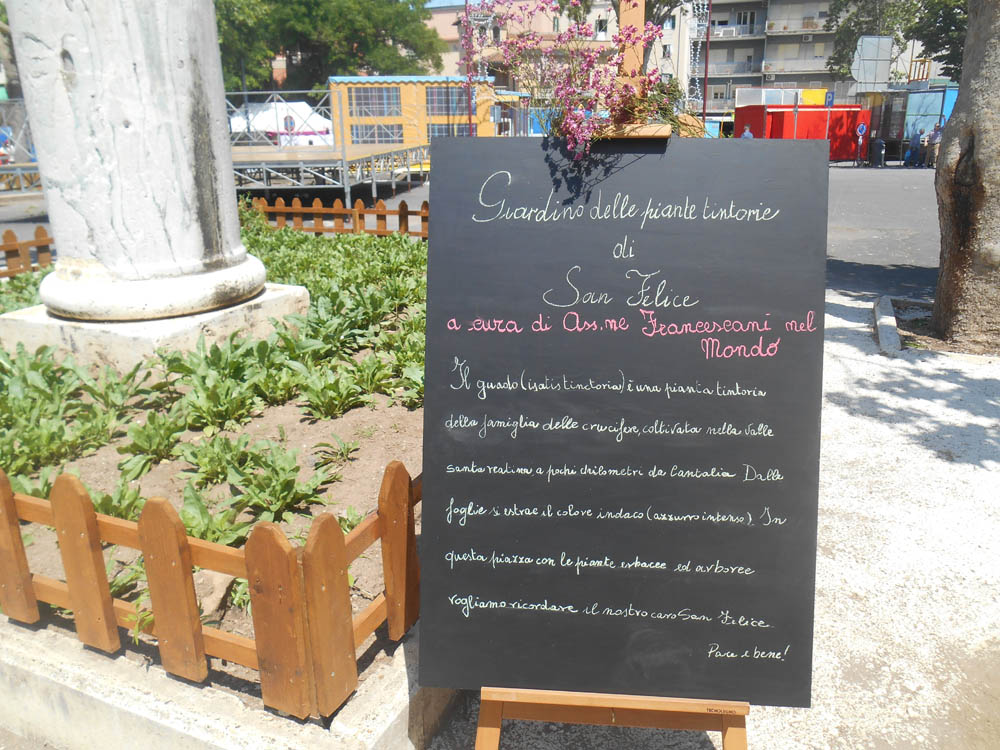 Giardino delle piante tintorie
di
San Felice
a cura di Ass.ne Francescani nel
Mondo
Il guado (isatis tinctoria) è una pianta tintoria
della famiglia delle crucifere, coltivata nella Valle
santa reatina a pochi chilometri da Cantalia. Dalle
foglie si estrae il colore indaco (azzurro intenso). In
questa piazza con le piante erbacee ed arboree
vogliamo ricordare il nostro caro San Felice.
Pace e bene!
TECNOLEGNO